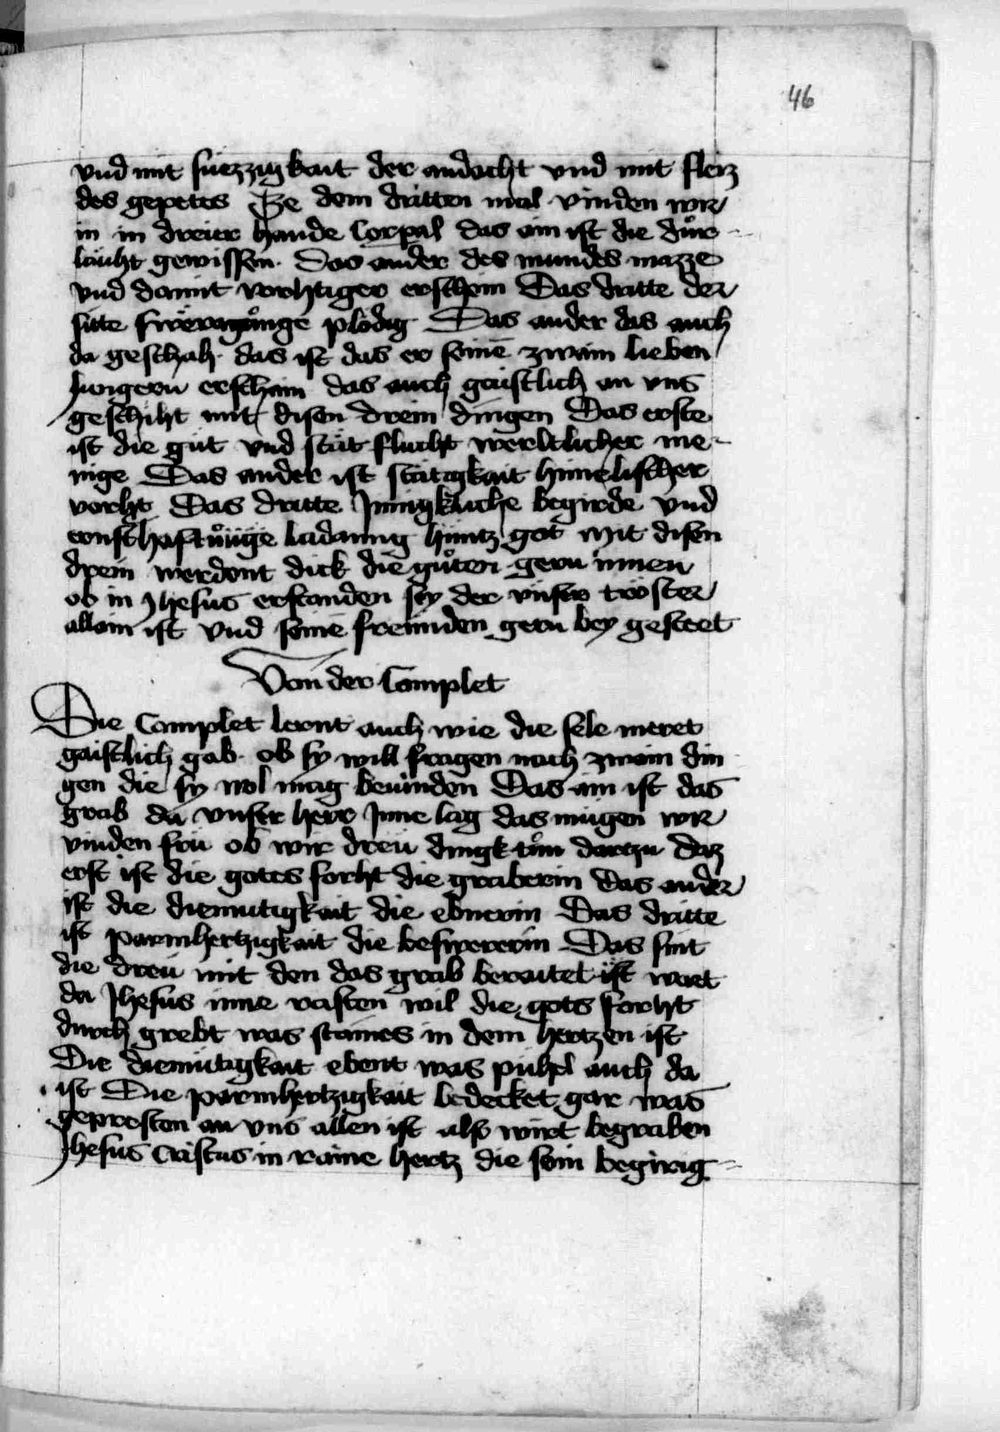 46
vnd mit suezzigkait der andacht vnd mit fleiz
des gepetes Ze dem dritten mal vinden wir
in in dreier hande Corpal das ain ist die dur-
läuht gewissen. Das ander des mundes mazze
vnd damit vorhtiger erschein Das dritte der
site plodig Das ander das auch
da geschah. das ist das er seinē zwain lieben
Jungern erschain das auch gaistlich an vns
geschiht mit disen drein dingen Das erste
ist die gut vnd stät flucht werltlicher me-
nige Das ander ist stätigkait himelischer
vorht Das dritte Innigkliche begirde vnd
ladaung hüntz got Mit disen
drein werdent dick die gůten gern innen
ob in Jhesus erstanden sey der vnser tröster
allain ist vnd seinē freunden gern bey gesteet
Von der Complet
Die Complet lernt auch wie die sele meret
gaistlich gab. ob sy will fragen nach zwain din
gen die sy wol mag bevinden Das ain ist das
grab da vnser herr Inne lag das mügen wir
vinden frü ob wir dreü dingk tůn dartzu daz
erst ist die gotes forht die graberin das ander
ist die diemutigkait die ebnerin Das dritte
ist parmhertzigkait die beswererin Das sint
die dreü mit den das grab beraitet ist wart
da Jhesus inne rasten wil die gots forht
durch grebt was staines in dem hertzen ist
Die diemütigkait ebent was pühel auch da
ist Die parmhertzigkait bedecket gar was
gepresten an vns allen ist also wirt begraben
Jhesus Cristus in raine hertz die sein begirig-